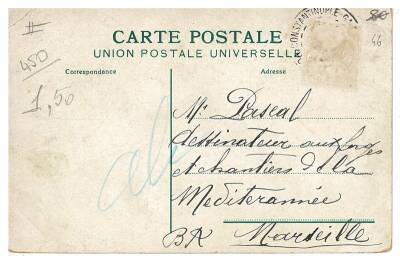 #
CONSTANTINOPLE
80
46
CARTE POSTALE
UNION POSTALE UNIVERSELLE
450
Correspondance
Adresse
1,50
Mr Pascal
dessinateur aux forges
et chantiers de la
Mediterannée
Marseille